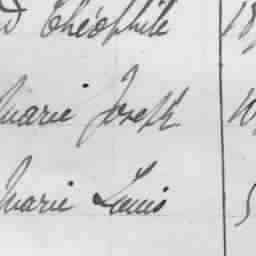 Théophile 18
Marie Joseph 10
Marie Louis 5